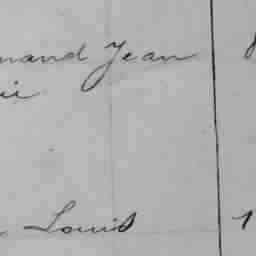 mand Jean
ii
Louis
1